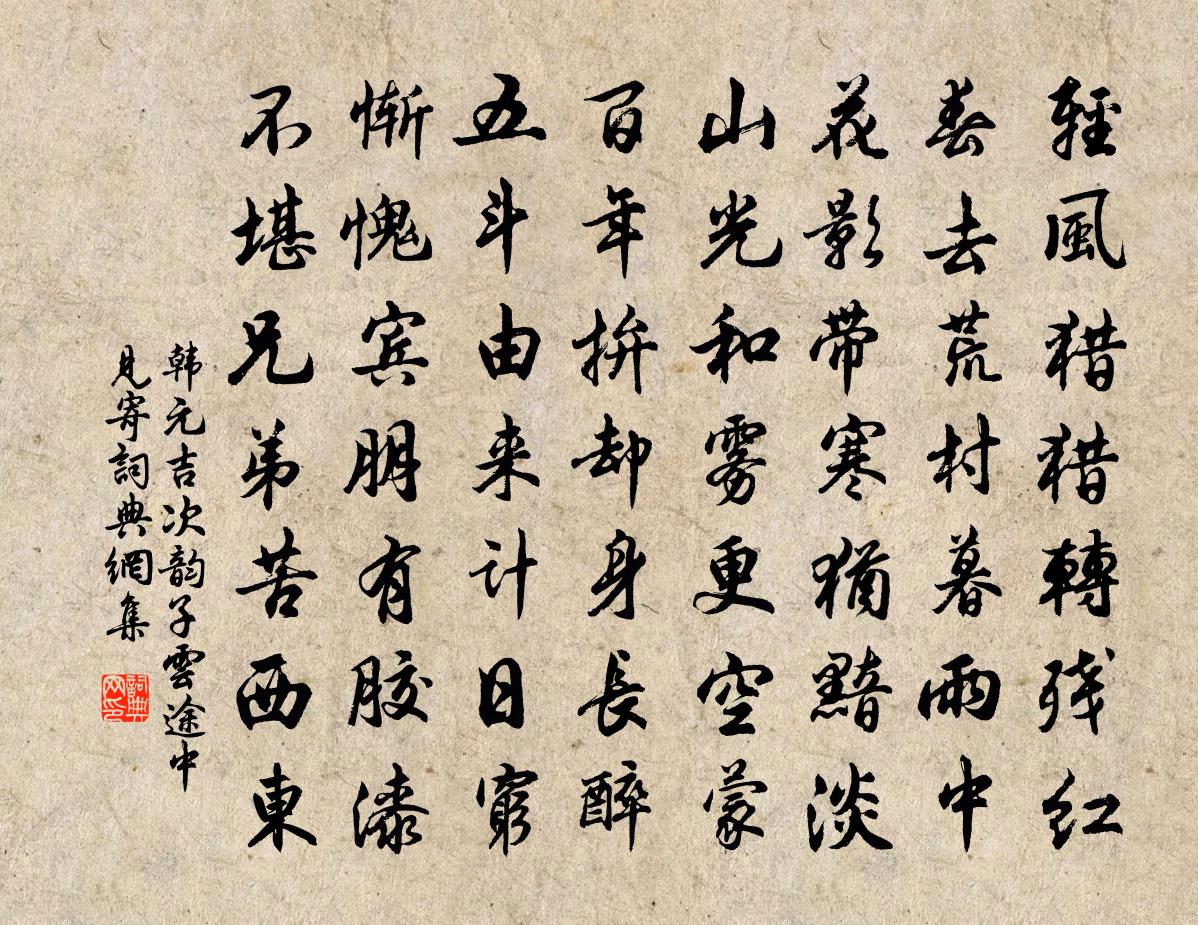 輕風猎猎轉残红
春去荒村暮雨中
花影带寒猶黯淡
山光和雾更空蒙
百年拚却身長醉
五斗由来计日窮
惭愧宾朋有胶漆
不堪兄弟苦西東
韩元吉次韵子雲途中
見寄詞典網集
詞典
网印